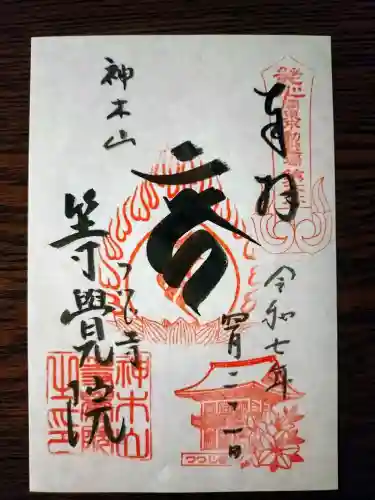 奉拝
令和七年
四月二十一日
神木山
つつじ寺
等覺院
神木山
等覺院
之印
つつじ